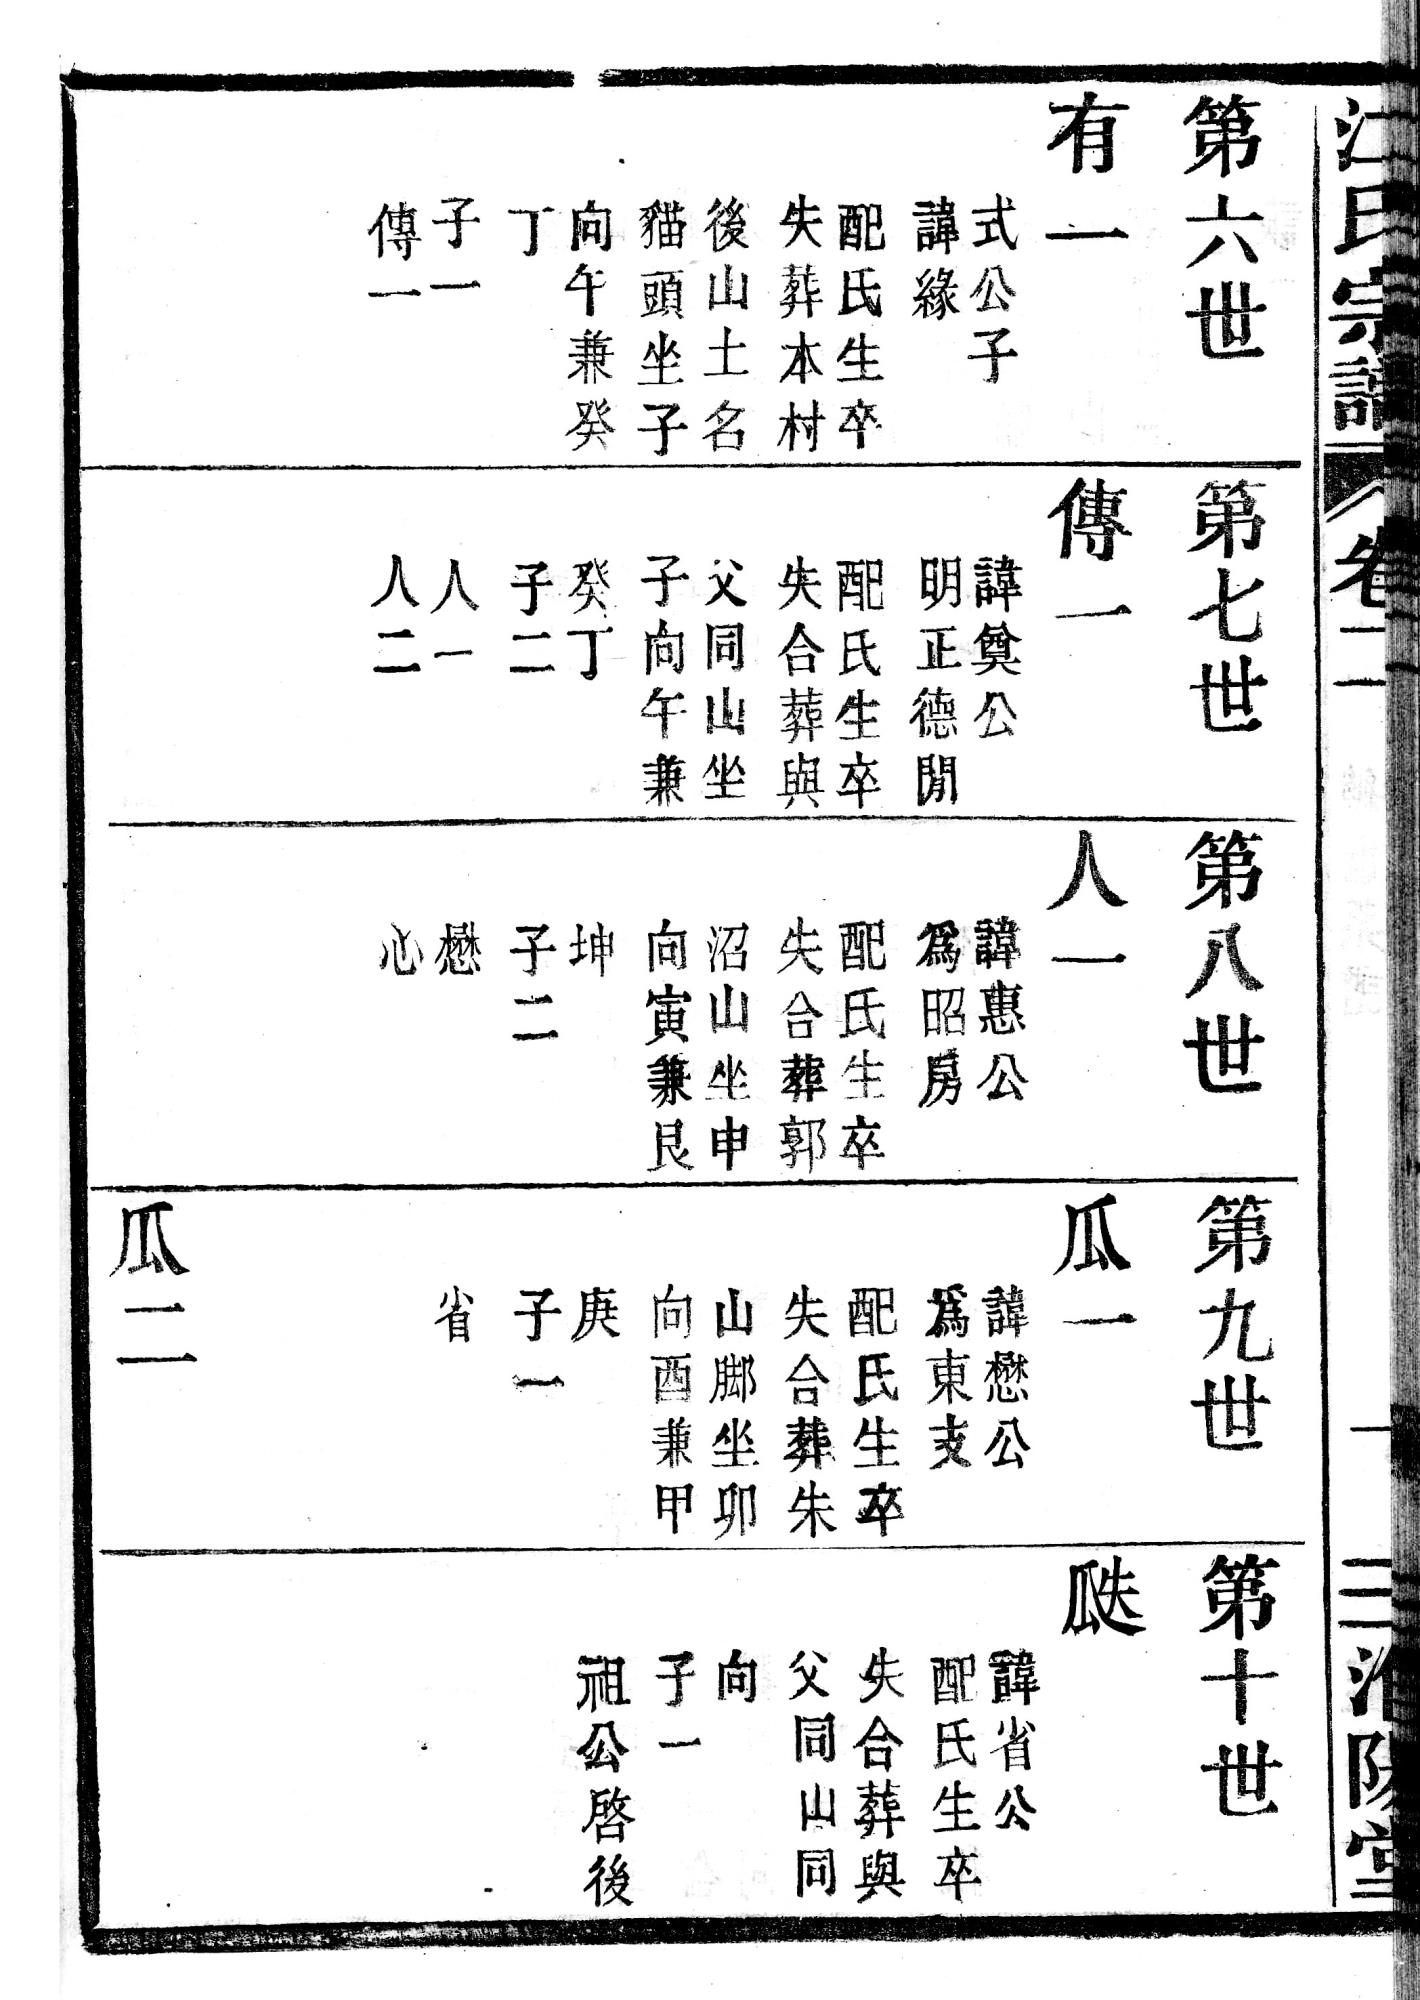 江氏宗譜
卷二
一
三淮陰堂
第六世
有一
式公子
諱緣
配氏生卒
失葬本村
後山土名
貓頭坐子
向午兼癸
丁
子一
傳一
第七世
傳一
諱奠公
明正德閒
配氏生卒
失合葬與
父同山坐
子向午兼
癸丁
子二
人一
人二
第八世
人一
諱惠公
爲昭房
配氏生卒
失合葬郭
沼山坐申
向寅兼艮
坤
子二
懋
心
第九世
瓜一
諱懋公
爲東支
配氏生卒
失合葬朱
山脚坐卯
向酉兼甲
庚
子一
省
瓜二
第十世
瓞
諱省公
配氏生卒
失合葬與
父同山同
向
子一
祖公啓後